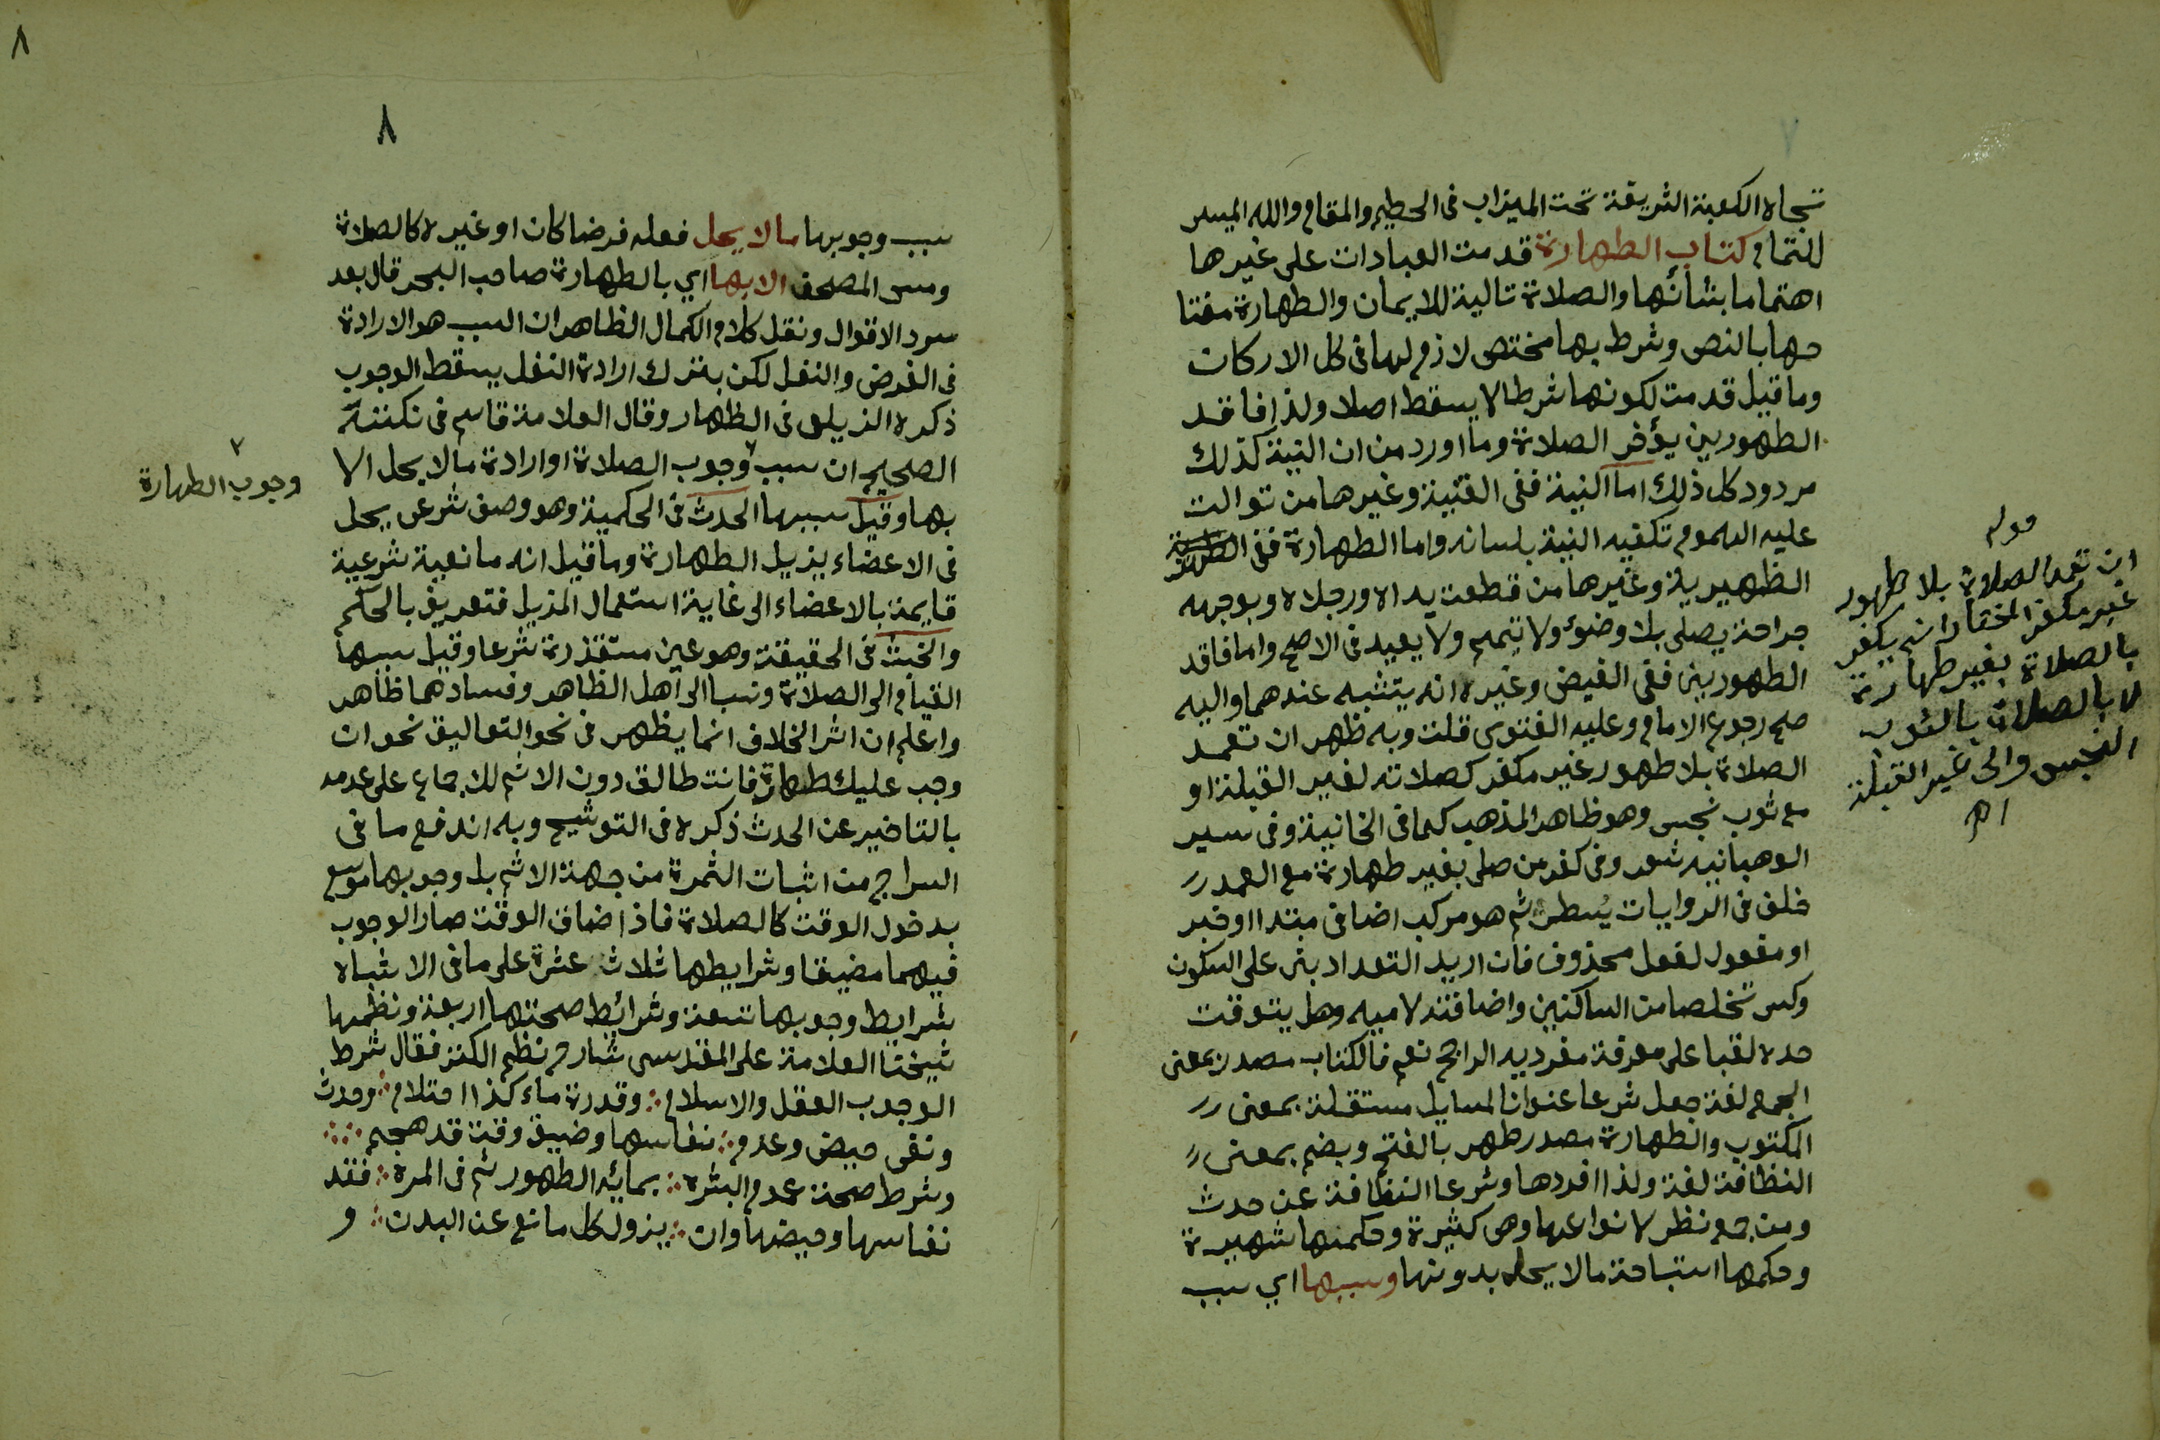 تجاه الكعبة الشريفة تحت الميزاب في الحطيم والمقام والله الميسر
للتمام كتاب الطهارة قدمت العبادات على غيرها
اهتماما بشأنها والصلاة تالية للايمان والطهارة مفتا
حها بالنص وشرط بها مختص لازم لها في كل الاركان
وما قيل قدمت لكونها شرطا لا يسقط اصلا ولذا فاقد
الطهورين يؤخر الصلاة وما اورد من ان النية كذلك
مردود كل ذلك اما النية ففي القنية وغيرها من توالت
عليه الهموم تكفيه النية بلسانه واما الطهارة ففي
الظهيرية وغيرها من قطعت يداه ورجلاه وبوجهه
جراحة يصلي بلا وضوء ولا تيمم ولا يعيد في الاصح واما فاقد
الطهورين ففي الفيض وغيره انه يتشبه عندهما واليه
صح رجوع الامام وعليه الفتوى قلت وبه ظهر ان تعمد
الصلاة بلا طهور غير مكفر كصلاته لغير القبلة او
مع ثوب نجس وهو ظاهر المذهب كما في الخانية وفي سير
الوهبانيه شعر وفي كفر من صلى بغير طهارة مع العمد
خلف في الروايات يسطر ثم هو مركب اضافي مبتدا او خبر
او مفعول لفعل محذوف فان اريد التعداد بني على السكون
وكسر تخلصا من الساكنين واضافته لاميه وهل يتوقف
حده لقبا على معرفة مفرديه الراجح نعم فالكتاب مصدر بمعنى
الجمع لغة جعل شرعا عنوانا لمسايل مستقلة بمعنى
المكتوب والطهارة مصدر طهر بالفتح ويضم بمعنى
النظافة لغة ولذا افردها وشرعا النظافة عن حدث
ومن جمع نظر لانواعها وهي كثيرة وحكمتها شهيرة
وحكمها استباحة ما لا يحل بدونها وسببها اي سبب
قوله
ان تعمد الصلاة بلا طهور
غير مكفر المختار انه يكفر
بالصلاة بغير طهارة
لا بالصلاة بالثوب
النجس والى غير القبلة
اه
٨
٨
سبب وجوبها ما لا يحل فعله فرضا كان او غيره كالصلاة
ومس المصحف الا بها اي بالطهارة صاحب البحر قال بعد
سرد الاقوال ونقل كلام الكمال الظاهر ان السبب هو الارادة
في الفرض والنفل لكن بترك ارادة النفل يسقط الوجوب
ذكره الزيلعي في الظهار وقال العلامة قاسم في نكتته
الصحيح ان سبب وجوب الصلاة او ارادة ما لا يحل الا
بها وقيل سببها الحدث في الحكمية وهو وصف شرعي يحل
في الاعضاء يزيل الطهارة وما قيل انه مانعية شرعية
قايمة بالاعضاء الى غاية استعمال المزيل فتعريف بالحكم
والخبث في الحقيقة وهو عين مستقذرة شرعا وقيل سببها
القيام الى الصلاة ونسبا الى اهل الظاهر وفسادهما ظاهر
واعلم ان اثر الخلاف انما يظهر في نحو التعاليق نحو ان
وجب عليك طهارة فانت طالق دون الاثم للاجماع على عدمه
بالتاخير عن الحدث ذكره في التوشيح وبه اندفع ما في
السراج من اثبات الثمرة من جهة الاثم بل وجوبها موسع
بدخول الوقت كالصلاة فاذا ضاق الوقت صار الوجوب
فيهما مضيقا وشرايطها ثلاث عشرة على ما في الاشباه
شرايط وجوبها تسعة وشرائط صحتها اربعة ونظمها
شيخنا العلامة علي المقدسي شارح نظم الكنز فقال شرط
الوجوب العقل والاسلام وقدرة ماء كذا احتلام وحدث
ونفي حيض وعدم نفاسها وضيق وقت قد هجم
وشرط صحة عموم البشره بمائه الطهور ثم في المره فقد
نفاسها وحيضها وان يزول كل مانع عن البدن و
وجوب الطهارة